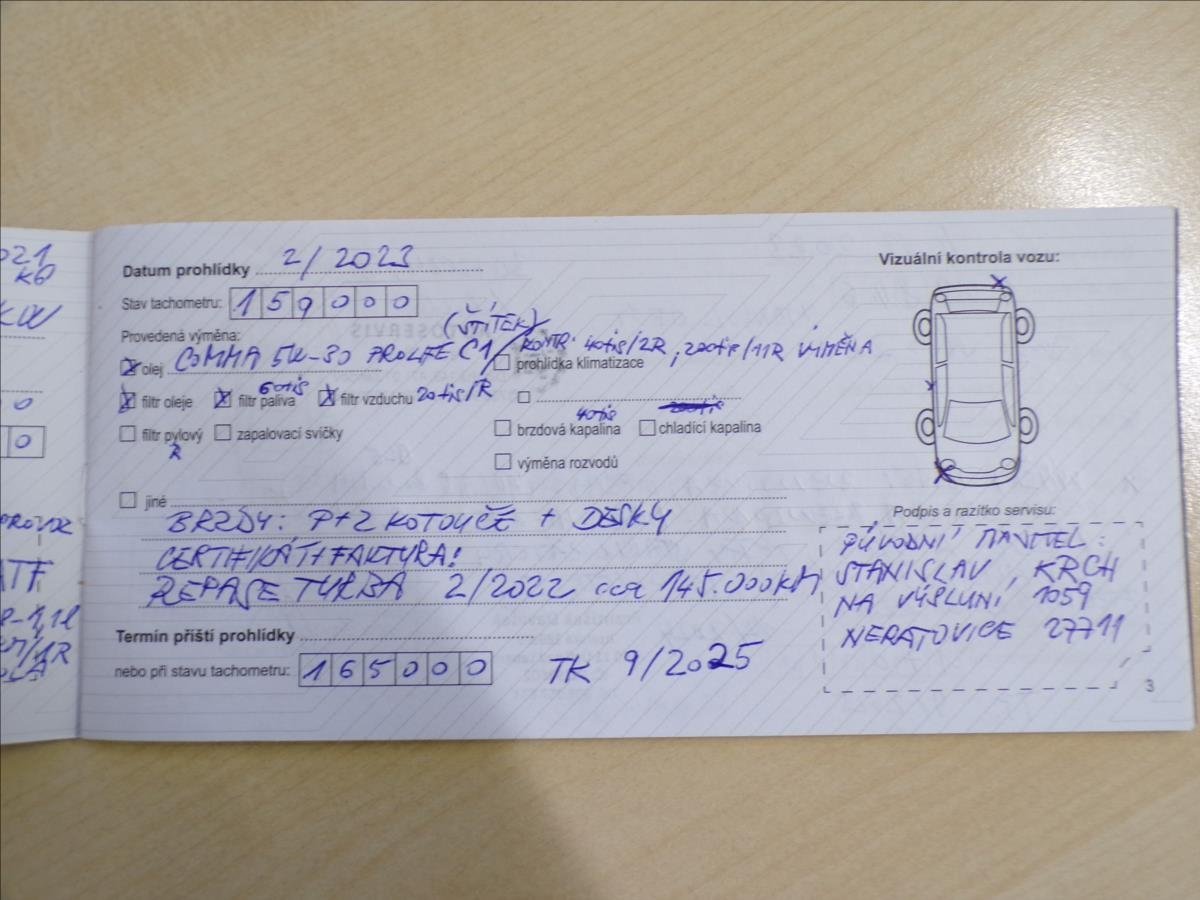 021
KĎ
KW
0
0
PROVOZ
ATF
KM/1R
Datum prohlídky 2/2023
Stav tachometru: 159000
Provedená výměna:
(ŠTÍTEK)
olej COMMA 5W-30 PROLIFE C1/KONTR. 40tis/2R, 200tis/11R VÍMĚNA
prohlídka klimatizace
60tis
filtr oleje filtr paliva filtr vzduchu 20tis/R
40tis 200tis
filtr pylový zapalovací svíčky brzdová kapalina chladící kapalina
R
výměna rozvodů
jiné
BRZDY: P+Z KOTOUČE + DESKY
CERTIFIKÁT+FAKTURA!
REPASE TURBA 2/2022 cca 145.000KM
Termín příští prohlídky
nebo při stavu tachometru: 165000 TK 9/2025
Vizuální kontrola vozu:
Podpis a razítko servisu:
PŮVODNÍ MAJITEL:
STANISLAV, KRCH
NA VÝSLUNÍ 1059
NERATOVICE 27711
3